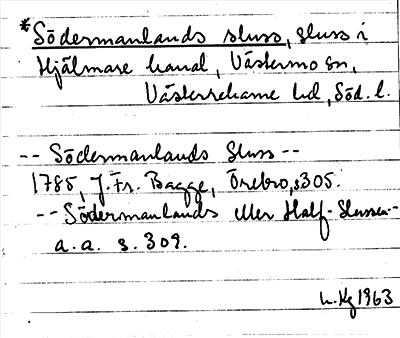 *Södermanlands sluss, sluss i
Hjälmare kanal, Västermo sn,
Västerrekarne hd, Söd. l.
-- Södermanlands Sluss --
1785, J. Fr. Bagge, Örebro, s 305.
-- Södermanlands eller Half-Slussen --
a. a. s. 309.
1963